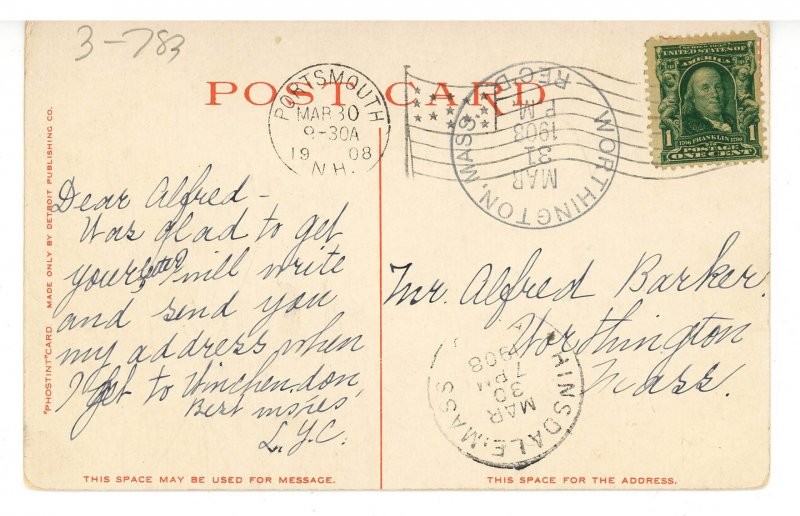 3-783
POST CARD
PORTSMOUTH
MAR 30
9-30A
1908
N.H.
WORTHINGTON, MASS.
REC'D.
MAR
31
1908
P.M.
SERIES 1902
UNITED STATES OF
AMERICA
1706 FRANKLIN 1790
1 POSTAGE 1
ONE CENT
"PHOSTINT" CARD MADE ONLY BY DETROIT PUBLISHING CO.
Dear Alfred -
Was glad to get
your letter will write
and send you
my address when
I get to Winchendon,
Best
L.Y.C.
Mr. Alfred Barker.
Worthington
Mass.
HINSDALE, MASS
MAR
30
7 PM
1908
THIS SPACE MAY BE USED FOR MESSAGE.
THIS SPACE FOR THE ADDRESS.